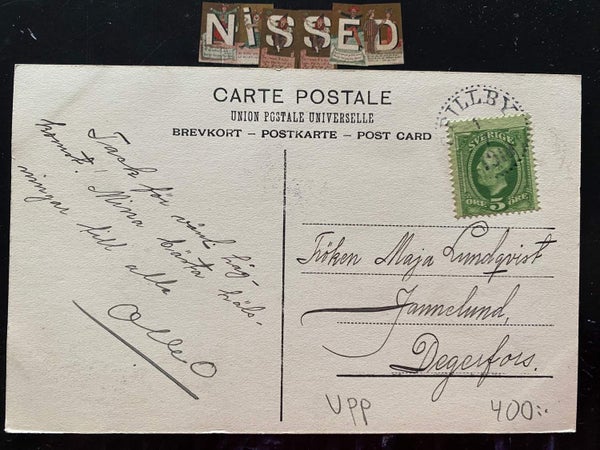 NiSSED
CARTE POSTALE
UNION POSTALE UNIVERSELLE
BREVKORT – POSTKARTE – POST CARD
BILLBY
SVERIGE
ÖRE 5 ÖRE
Tack för vänl. håg-
komst! Mina bästa häls-
ningar till alla
Olle O
Fröken Maja Lundqvist
Jannelund,
Degerfors.
UPP
400:-